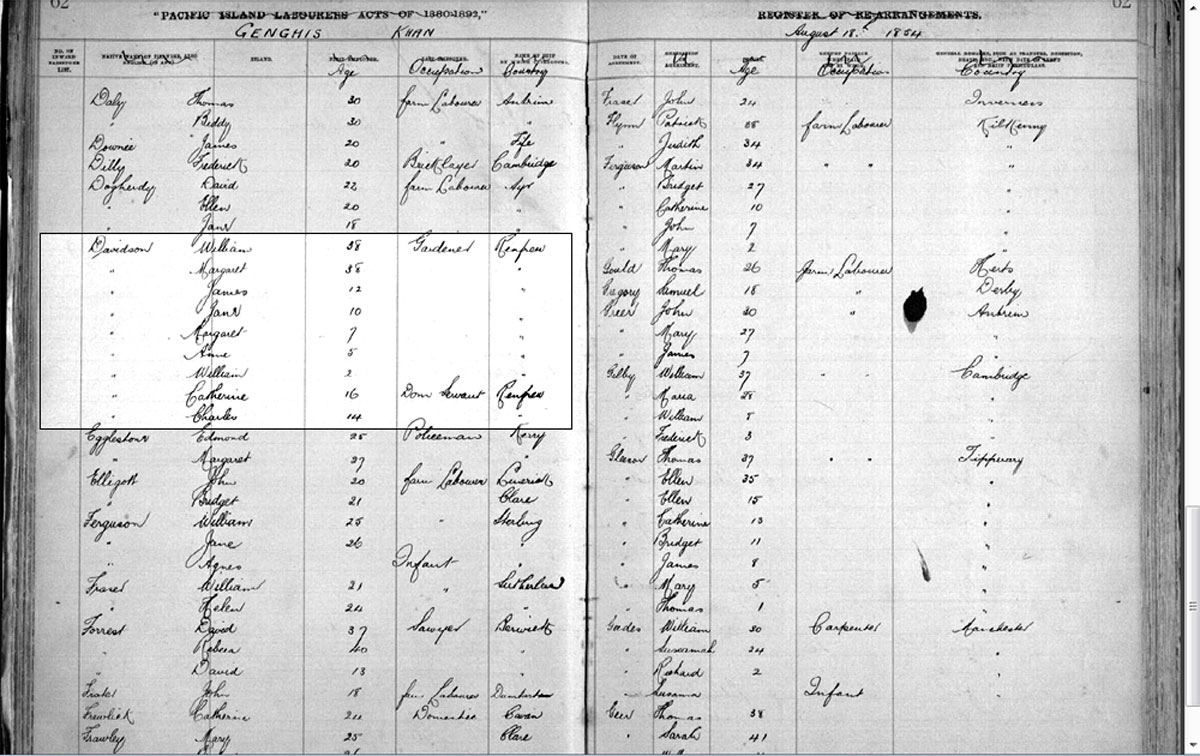 62
"PACIFIC ISLAND LABOURERS ACTS OF 1880-1892,"
GENGHIS KHAN
NO. OF INWARD PASSENGER LIST.
ISLAND.
Age Occupation Country
Daly Thomas 30 farm Labourer Antrim
" Biddy 30 "
Downie James 20 " Fife
Dilly Frederick 20 Bricklayer Cambridge
Dogherdy David 22 farm Labourer Ayr
" Ellen 20 "
" Jane 18 "
Davidson William 38 Gardener Renfrew
" Margaret 38 "
" James 12 "
" Jane 10 "
" Margaret 7 "
" Anne 5 "
" William 2 "
" Catherine 16 Dom Servant Renfrew
" Charles 14 "
Egglestone Edmond 25 Policeman Kerry
" Margaret 27 "
Ellegott John 20 farm Labourer Limerick
" Bridget 21 Clare
Ferguson William 25 " Sterling
" Jane 26 "
" Agnes Infant
Fraser William 21 " Sutherlan
" Helen 24
Forrest David 37 Sawyer Berwick
" Rebeca 40 "
" David 13 "
John 18 farm Labourer
Catherine Domestic Cavan
Frawley Mary 25 Clare
62
REGISTER OF RE-ARRANGEMENTS.
August 18th 1854
DATE OF AGREEMENT.
Age Occupation Country
Fraser John 24 Inverness
Flynn Patrick 35 farm Labourer Kilkenny
" Judith 34 "
Ferguson Martin 34 " " "
" Bridget 27 "
" Catherine 10 "
" John 7 "
" Mary 2 "
Gould Thomas 26 farm Labourer Herts
Gregory Samuel 18 " Derby
Greer John 30 " Antrim
" Mary 27 "
" James 7 "
Gilby William 37 " " Cambridge
" Maria 28 "
" William 5 "
" Frederick 3 "
Gleeson Thomas 37 " " Tipperary
" Ellen 35 "
" Ellen 15 "
" Catherine 13 "
" Bridget 11 "
" James 8 "
" Mary 5 "
" Thomas 1 "
Geedes William 30 Carpenter Manchester
" Susannah 24 "
" Richard 2 "
" Susanna Infant "
Geer Thomas 38
" Sarah 41 "